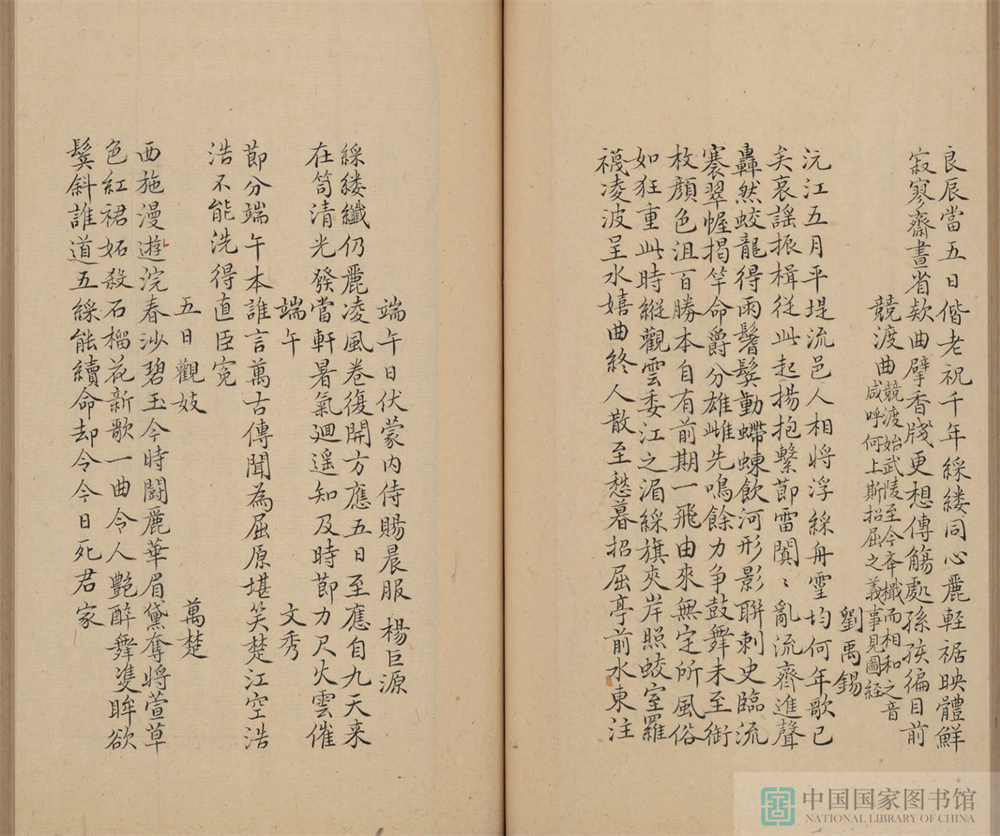 良辰當五日偕老祝千年綵縷同心麗輕裾映體鮮
寂寥齋晝省款曲擘香牋更想傳觴處孫孩徧目前
競渡曲
競渡始武陵至今舉檝而相和之音
咸呼何上斯招屈之義事見圖經
劉禹錫
沅江五月平堤流邑人相將浮綵舟靈均何年歌已
矣哀謡振楫從此起揚抱繫節雷闐〻亂流齊進聲
轟然蛟龍得雨鬐鬃動螮蝀飲河形影聯刺史臨流
褰翠幄揭竿命爵分雄雌先鳴餘力争鼓舞未至衘
枚顏色沮百勝本自有前期一飛由來無定所風俗
如狂重此時縱觀雲委江之湄綵旗夾岸照蛟室羅
襪凌波呈水嬉曲終人散至愁暮招屈亭前水東注
端午日伏蒙內侍賜晨服 楊巨源
綵縷纖仍麗凌風卷復開方應五日至應自九天来
在笥清光發當軒暑氣迴遥知及時節刀尺火雲催
端午 文秀
節分端午本誰言萬古傳聞為屈原堪笑楚江空浩
浩不能洗得直臣寃
五日觀妓 萬楚
西施漫遊浣春沙碧玉今時鬪麗華眉黛奪將萱草
色紅裙妬殺石榴花新歌一曲令人艷醉舞雙眸欲
鬢斜誰道五綵能續命却令今日死君家
中国国家图书馆
NATIONAL LIBRARY OF CHINA